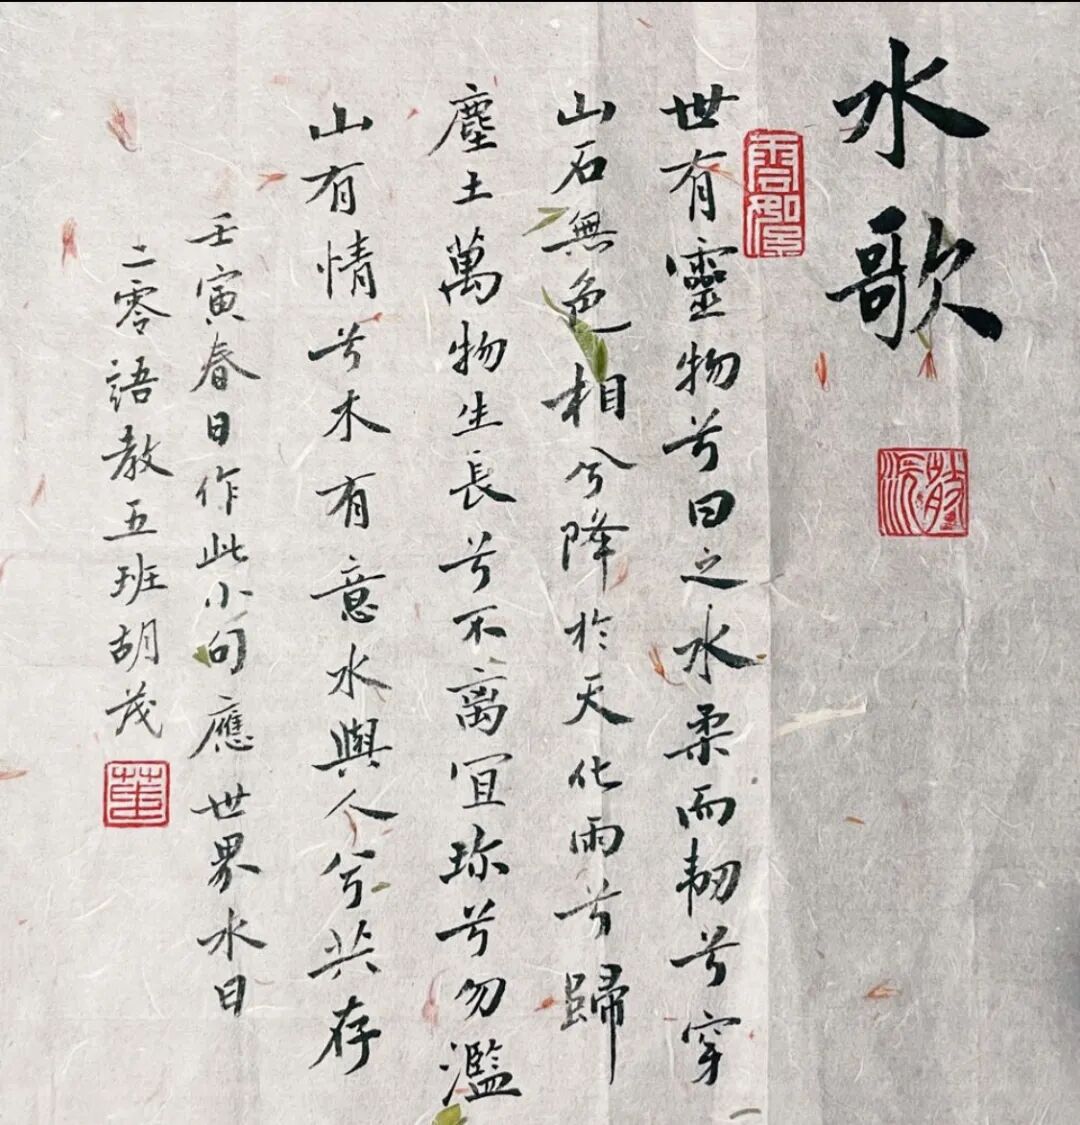 水歌
世有靈物兮曰之水柔而韌兮穿
山石無色相兮降於天化雨兮歸
塵土萬物生長兮不離宜珎兮勿濫
山有情兮木有意水與人兮共存
壬寅春日作此小句應世界水日
二零語教五班胡茂